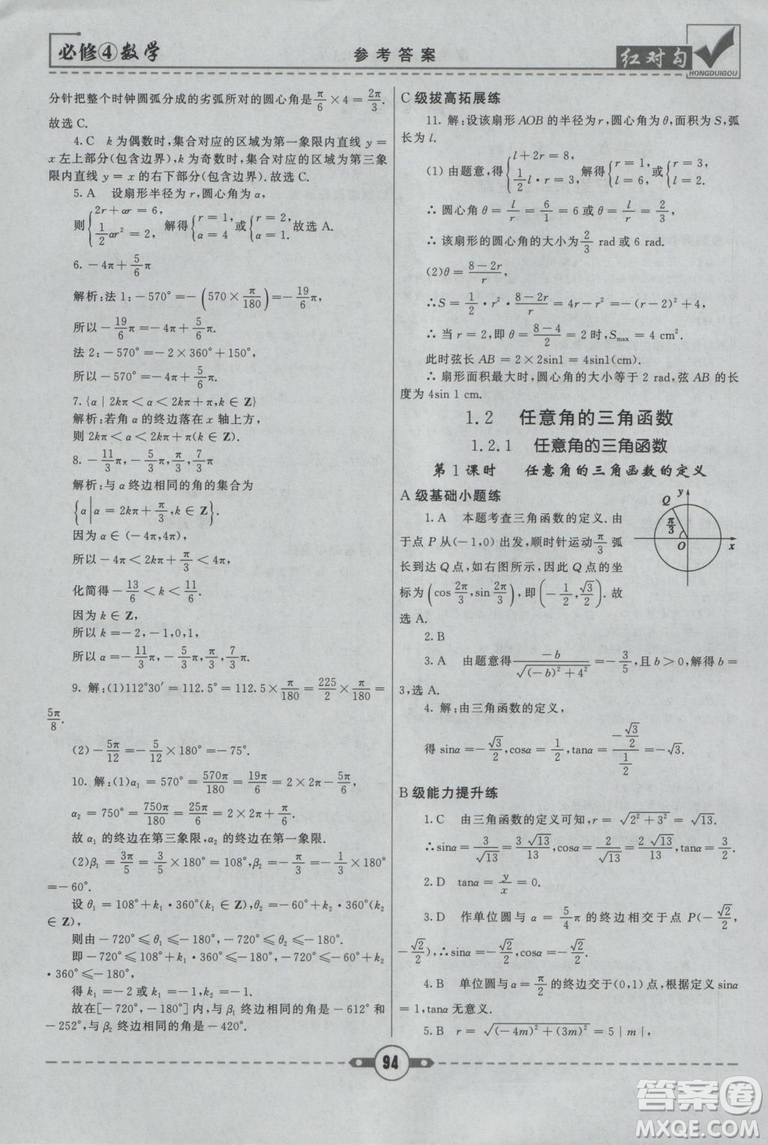 必修④数学
参考答案
红对勾
HONGDUIGOU
分针把整个时钟圆弧分成的劣弧所对的圆心角是π/6×4=2π/3.
故选C.
4.C k为偶数时,集合对应的区域为第一象限内直线y=
x左上部分(包含边界),k为奇数时,集合对应的区域为第三象
限内直线y=x的右下部分(包含边界).故选C.
5.A 设扇形半径为r,圆心角为α,
则{2r+αr=6, 1/2αr²=2, 解得{r=1, α=4 或{r=2, α=1. 故选A.
6.-4π+5/6π
解析:法1:-570°=-(570×π/180)=-19/6π,
所以-19/6π=-4π+5/6π.
法2:-570°=-2×360°+150°,
所以-570°=-4π+5/6π.
7.{α|2kπ<α<2kπ+π,k∈Z}
解析:若角α的终边落在x轴上方,
则2kπ<α<2kπ+π(k∈Z).
8.-11/3π,-5/3π,π/3,7/3π
解析:与α终边相同的角的集合为
{α|α=2kπ+π/3,k∈Z}.
因为α∈(-4π,4π),
所以-4π<2kπ+π/3<4π,
化简得-13/6<k<11/6.
因为k∈Z,
所以k=-2,-1,0,1,
所以α=-11/3π,-5/3π,π/3,7/3π.
9.解:(1)112°30′=112.5°=112.5×π/180=225/2×π/180=
5π/8.
(2)-5π/12=-5/12×180°=-75°.
10.解:(1)α₁=570°=570π/180=19π/6=2π+7π/6,
α₂=750°=750π/180=25π/6=2×2π+π/6.
故α₁的终边在第三象限,α₂的终边在第一象限.
(2)β₁=3π/5=3/5×180°=108°,β₂=-π/3=-1/3×180°
=-60°.
设θ₁=108°+k₁·360°(k₁∈Z),θ₂=-60°+k₂·360°
(k₂∈Z).
则由-720°≤θ₁≤-180°,-720°≤θ₂≤-180°,
即-720°≤108°+k₁·360°≤-180°,-720°≤-60°+k₂
·360°≤-180°,
得k₁=-2或k₁=-1,k₂=-1.
故在[-720°,-180°]内,与β₁终边相同的角是-612°和
-252°,与β₂终边相同的角是-420°.
C级拔高拓展练
11.解:设该扇形AOB的半径为r,圆心角为θ,面积为S,弧
长为l.
(1)由题意,得{l+2r=8, 1/2l·r=3, 解得{r=1, l=6 或{r=3, l=2.
∴圆心角θ=l/r=6/1=6或θ=l/r=2/3,
∴该扇形的圆心角的大小为2/3rad或6rad.
(2)θ=(8-2r)/r,
∴S=1/2·r²·(8-2r)/r=4r-r²=-(r-2)²+4,
∴当r=2,即θ=(8-4)/2=2时,Smax=4cm².
此时弦长AB=2×2sin1=4sin1(cm).
∴扇形面积最大时,圆心角的大小等于2rad,弦AB的长
度为4sin1cm.
1.2 任意角的三角函数
1.2.1 任意角的三角函数
第1课时 任意角的三角函数的定义
A级基础小题练
Q y π/3 O x
1.A 本题考查三角函数的定义.由
于点P从(-1,0)出发,顺时针运动π/3弧
长到达Q点,如右图所示,因此Q点的坐
标为(cos2π/3,sin2π/3),即(-1/2,√3/2).故
选A.
2.B
3.A 由题意得-b/√((-b)²+4²)=-3/5,且b>0,解得b=
3,选A.
4.解:由三角函数的定义,
得sinα=-√3/2,cosα=1/2,tanα=(-√3/2)/(1/2)=-√3.
B级能力提升练
1.C 由三角函数的定义可知,r=√(2²+3²)=√13.
∴sinα=3/√13=3√13/13,cosα=2/√13=2√13/13.
2.D tanα=y/x=0.
3.D 作单位圆与α=5/4π的终边相交于点P(-√2/2,
-√2/2),∴sinα=-√2/2,cosα=-√2/2,tanα=1.
4.B 单位圆与α=π/2的终边交于(0,1)点,根据定义sinα
=1,tanα无意义.
5.B r=√((-4m)²+(3m)²)=5|m|,
94
答案圈
MXQE.COM